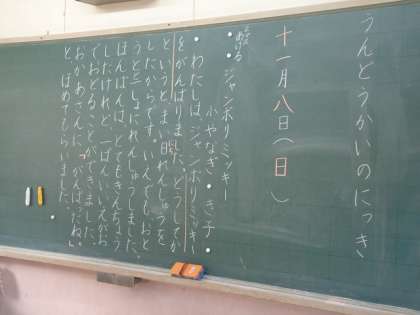 うんどうかいのにっき
十一月八日（日）
あげる
ジャンボリミッキー
小やなぎ き子
わたしは、ジャンボリミッキー
をがんばりました。どうしてか
というと、まい日れんしゅうを
したからです。いえでもおと
うとといっしょにれんしゅうしました。
ほんばんは、とてもきんちょう
したけれど、一ばんいいえがお
でおどることができました。
おかあさんに、「がんばったね。」
とほめてもらいました。